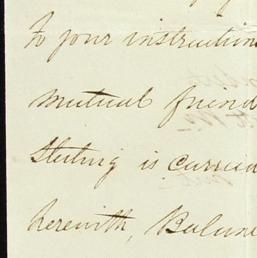 to your instruction
mutual friend
Sterling is carried
herewith, Balan